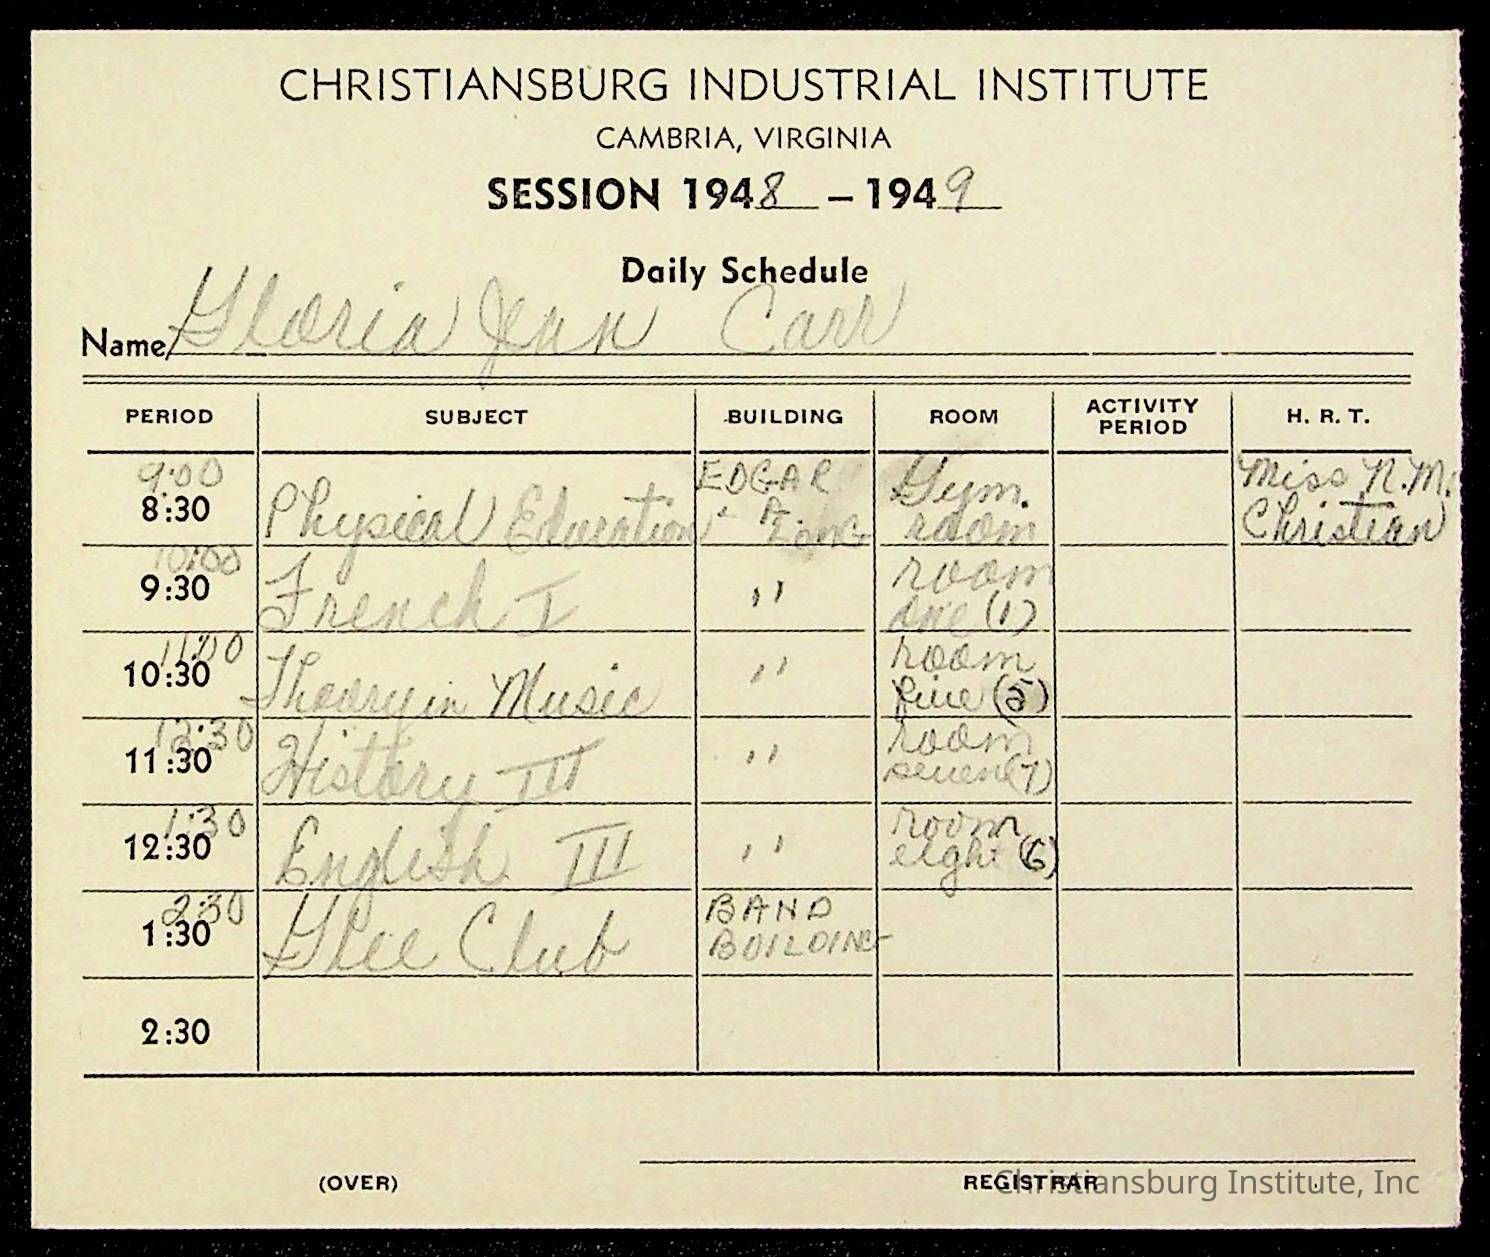 CHRISTIANSBURG INDUSTRIAL INSTITUTE
CAMBRIA, VIRGINIA
SESSION 1948 – 1949
Daily Schedule
Name Gloria Jean Carr
PERIOD SUBJECT BUILDING ROOM ACTIVITY PERIOD H. R. T.
9:00 EDGAR Gym. Miss N.M.
8:30 Physical Education A. Long room Christian
10:00 room
9:30 French I " one (1)
11:00 room
10:30 Theory in Music " five (5)
12:30 room
11:30 History III " seven (7)
1:30 room
12:30 English III " eight (6)
2:30 BAND
1:30 Glee Club BUILDING
2:30
(OVER) REGISTRAR
Christiansburg Institute, Inc